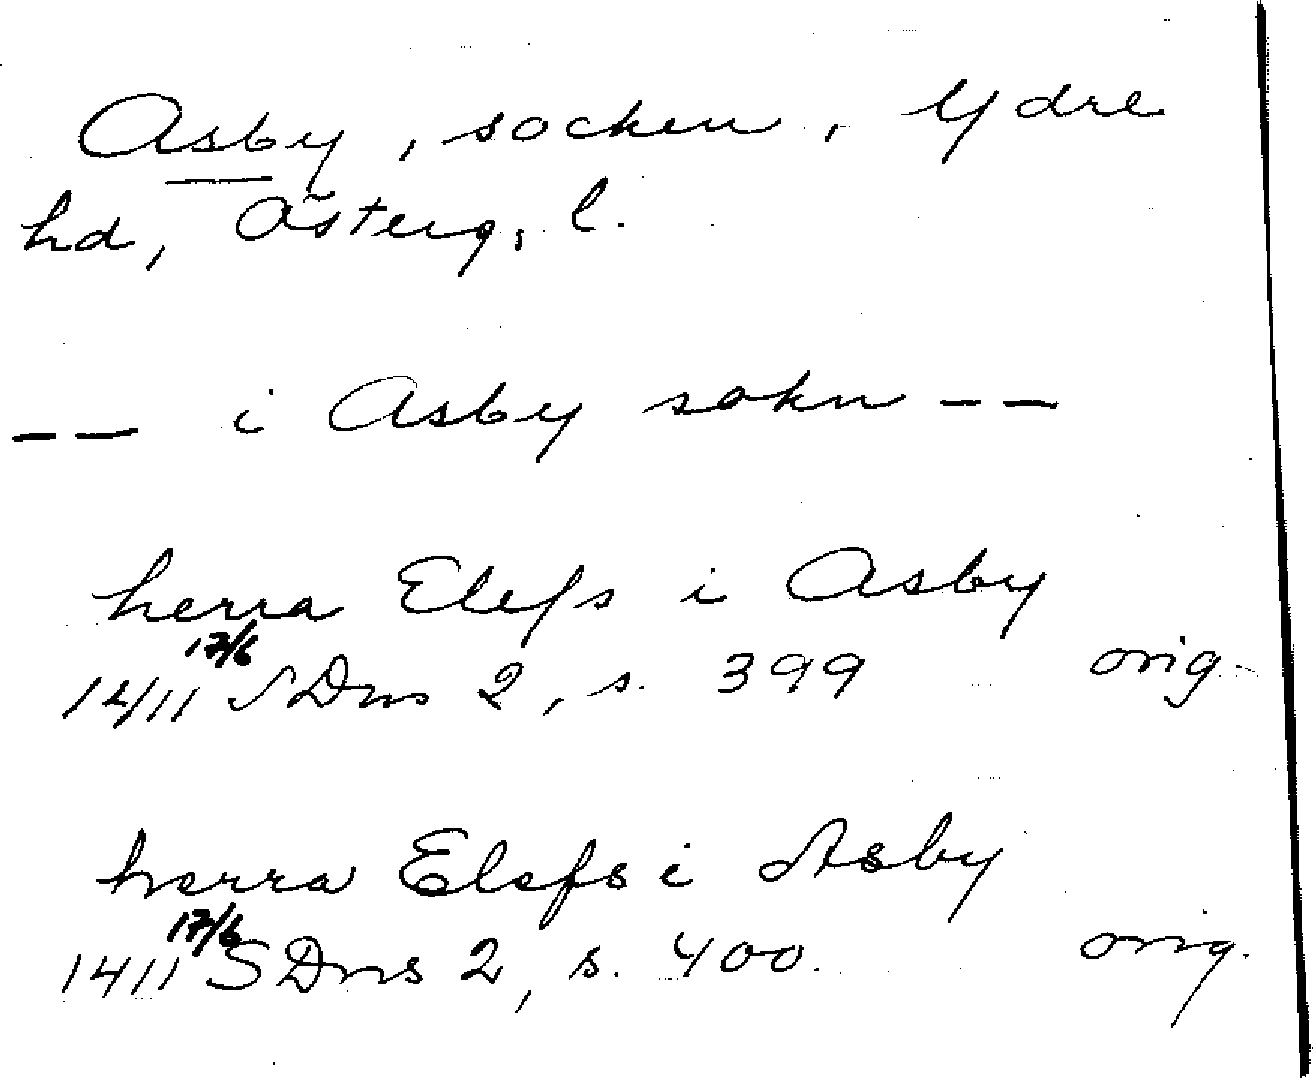 Asby, socken, Ydre
hd, Österg. l.
-- i Asby sokn --
herra Elefs i Asby
17/6
1411 SDns 2, s. 399 orig.
herra Elefs i Asby
17/6
1411 SDns 2, s. 400. orig.